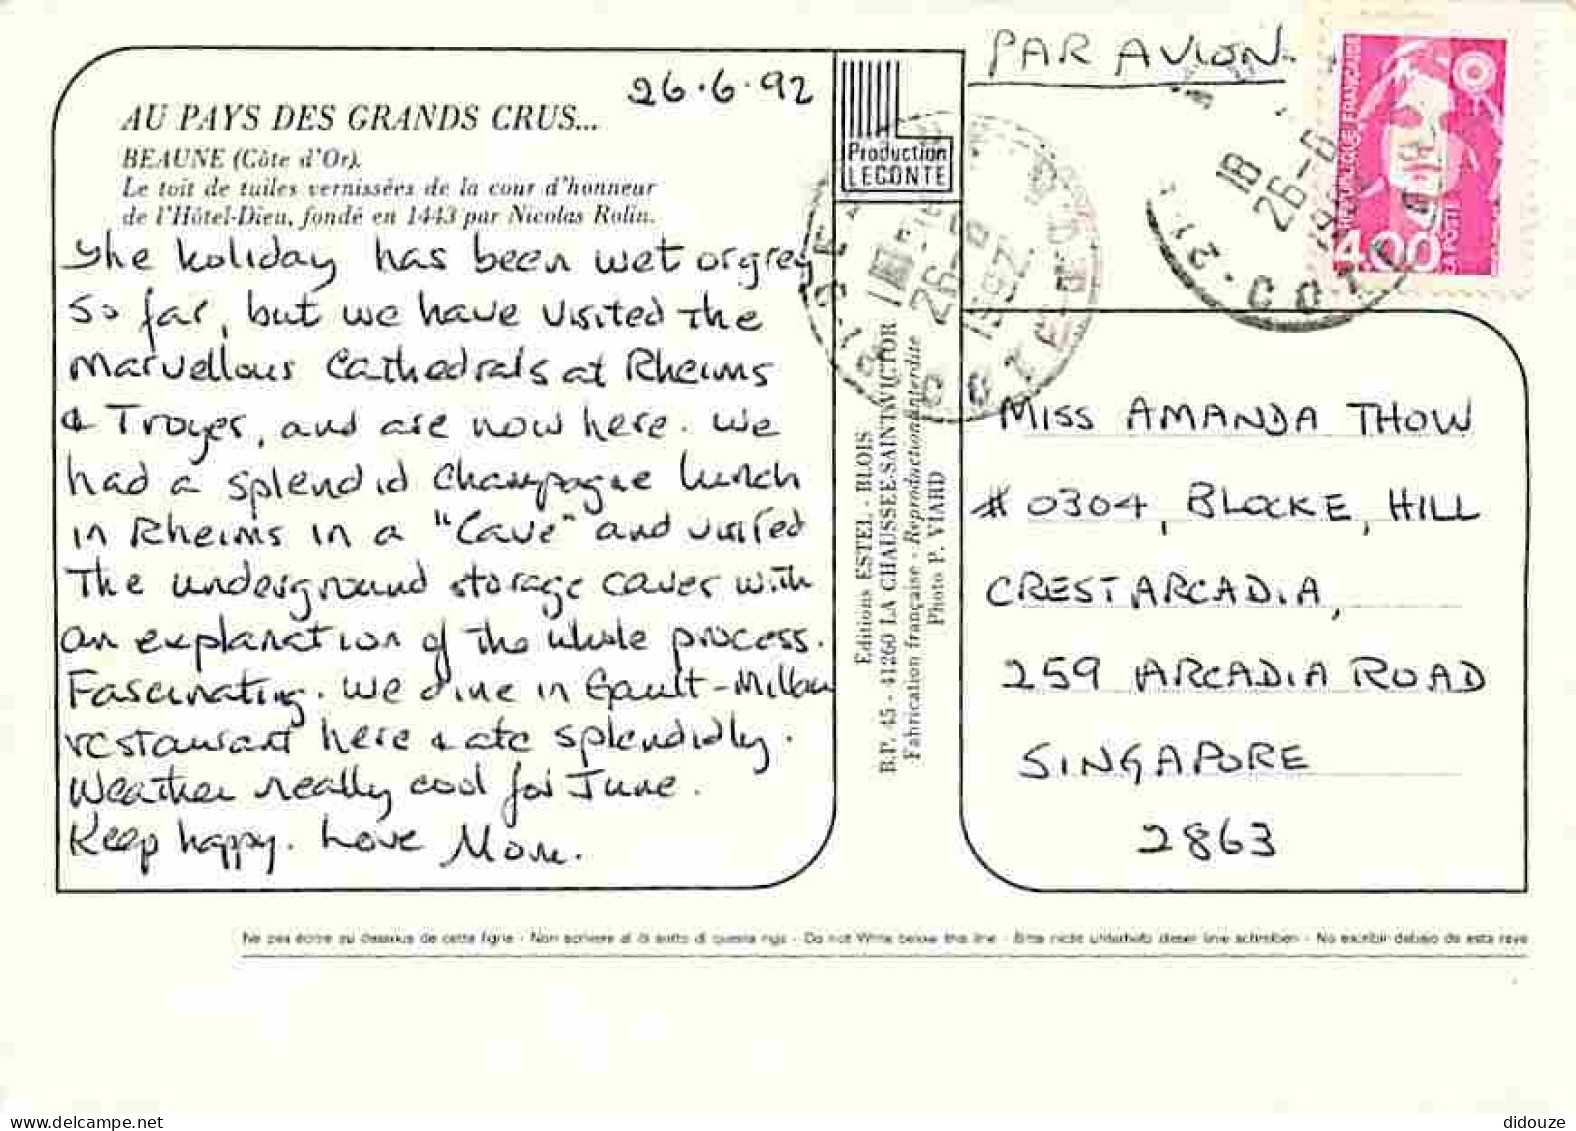 26.6.92
AU PAYS DES GRANDS CRUS...
BEAUNE (Côte d'Or).
Le toit de tuiles vernissées de la cour d'honneur
de l'Hôtel-Dieu, fondé en 1443 par Nicolas Rolin.
The holiday has been wet or grey
so far, but we have visited the
marvellous Cathedrals at Rheims
& Troyes, and are now here. We
had a splendid Champagne lunch
in Rheims in a "Cave" and visited
the underground storage caves with
an explanation of the whole process.
Fascinating. We dine in Gault-Millau
restaurant here & ate splendidly.
Weather really cool for June.
Keep happy. Love Mom.
Production
LECONTE
Editions ESTEL - BLOIS
B.P. 45 - 41260 LA CHAUSSEE-SAINT-VICTOR
Fabrication française - Reproduction interdite
Photo P. VIARD
PAR AVION
REPUBLIQUE FRANÇAISE
4.00
LA POSTE
18
26-6
21. COTE
26-
MISS AMANDA THOW
#0304, BLOCKE, HILL
CREST ARCADIA,
259 ARCADIA ROAD
SINGAPORE
2863
Ne pas écrire au dessous de cette ligne - Non scrivere al di sotto di questa riga - Do not Write below this line - Bitte nicht unterhalb dieser linie schreiben - No escribir debajo de esta raya
didouze